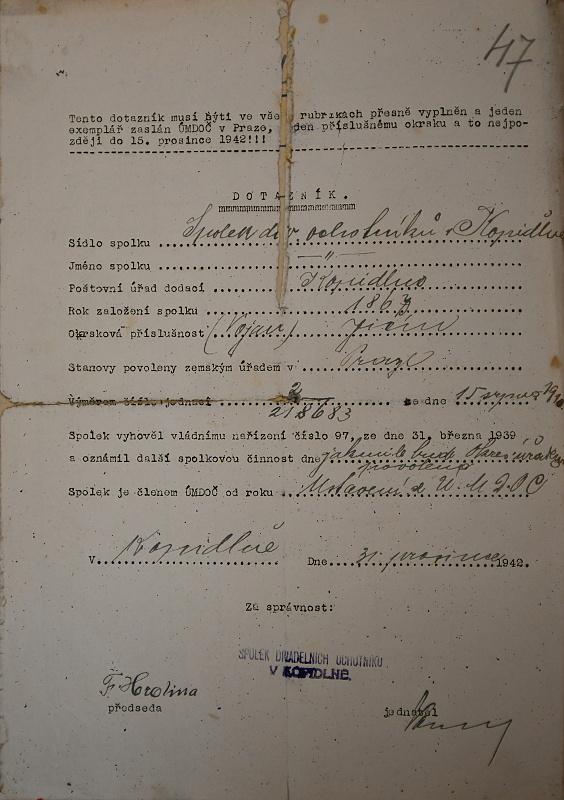 47
Tento dotazník musí býti ve vše rubrikách přesně vyplněn a jeden
exemplář zaslán ÚMDOČ v Praze, den příslušnému okrsku a to nejpo-
zději do 15. prosince 1942!!!
DOTAZNÍK.
Sídlo spolku Spolek div ochotníků v Kopidlně
Jméno spolku —"—
Poštovní úřad dodací Kopidlno
Rok založení spolku 1863
Okrsková příslušnost (Vojan) Jičín
Stanovy povoleny zemským úřadem v Praze
Výměrem číslo jednací 2/218683 ze dne 15 srpna
Spolek vyhověl vládnímu nařízení číslo 97, ze dne 31. března 1939
a oznámil další spolkovou činnost dne
povoleno
Spolek je členem ÚMDOČ od roku Ustavení Ú.M.D.O.Č
V Kopidlně Dne 31 prosince 1942.
Za správnost:
SPOLEK DIVADELNÍCH OCHOTNÍKŮ
V KOPIDLNĚ.
F. Hrolina
předseda
jednatel